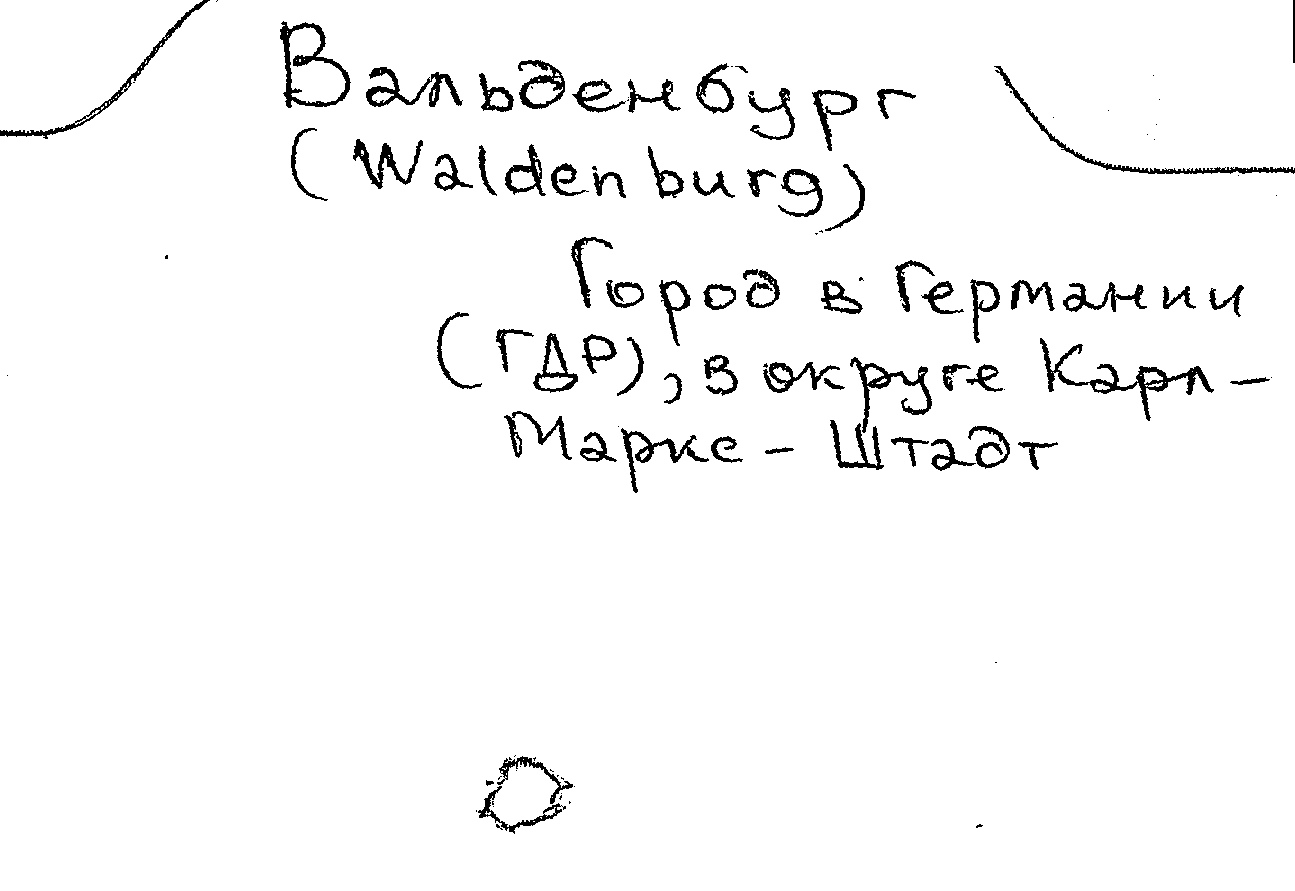 Вальденбург
(Waldenburg)
Город в Германии
(ГДР), в округе Карл-
Маркс-Штадт